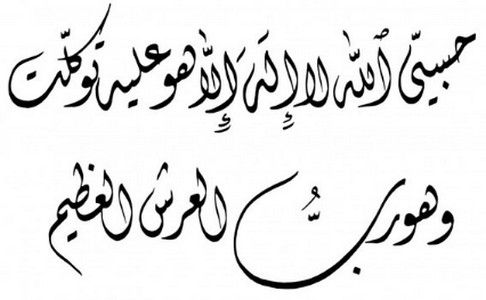 حسبيّ ٱللّٰه لا إِلَهَ إِلّا هو عليه توكلّت
وهو ربُّ العرش العظيم